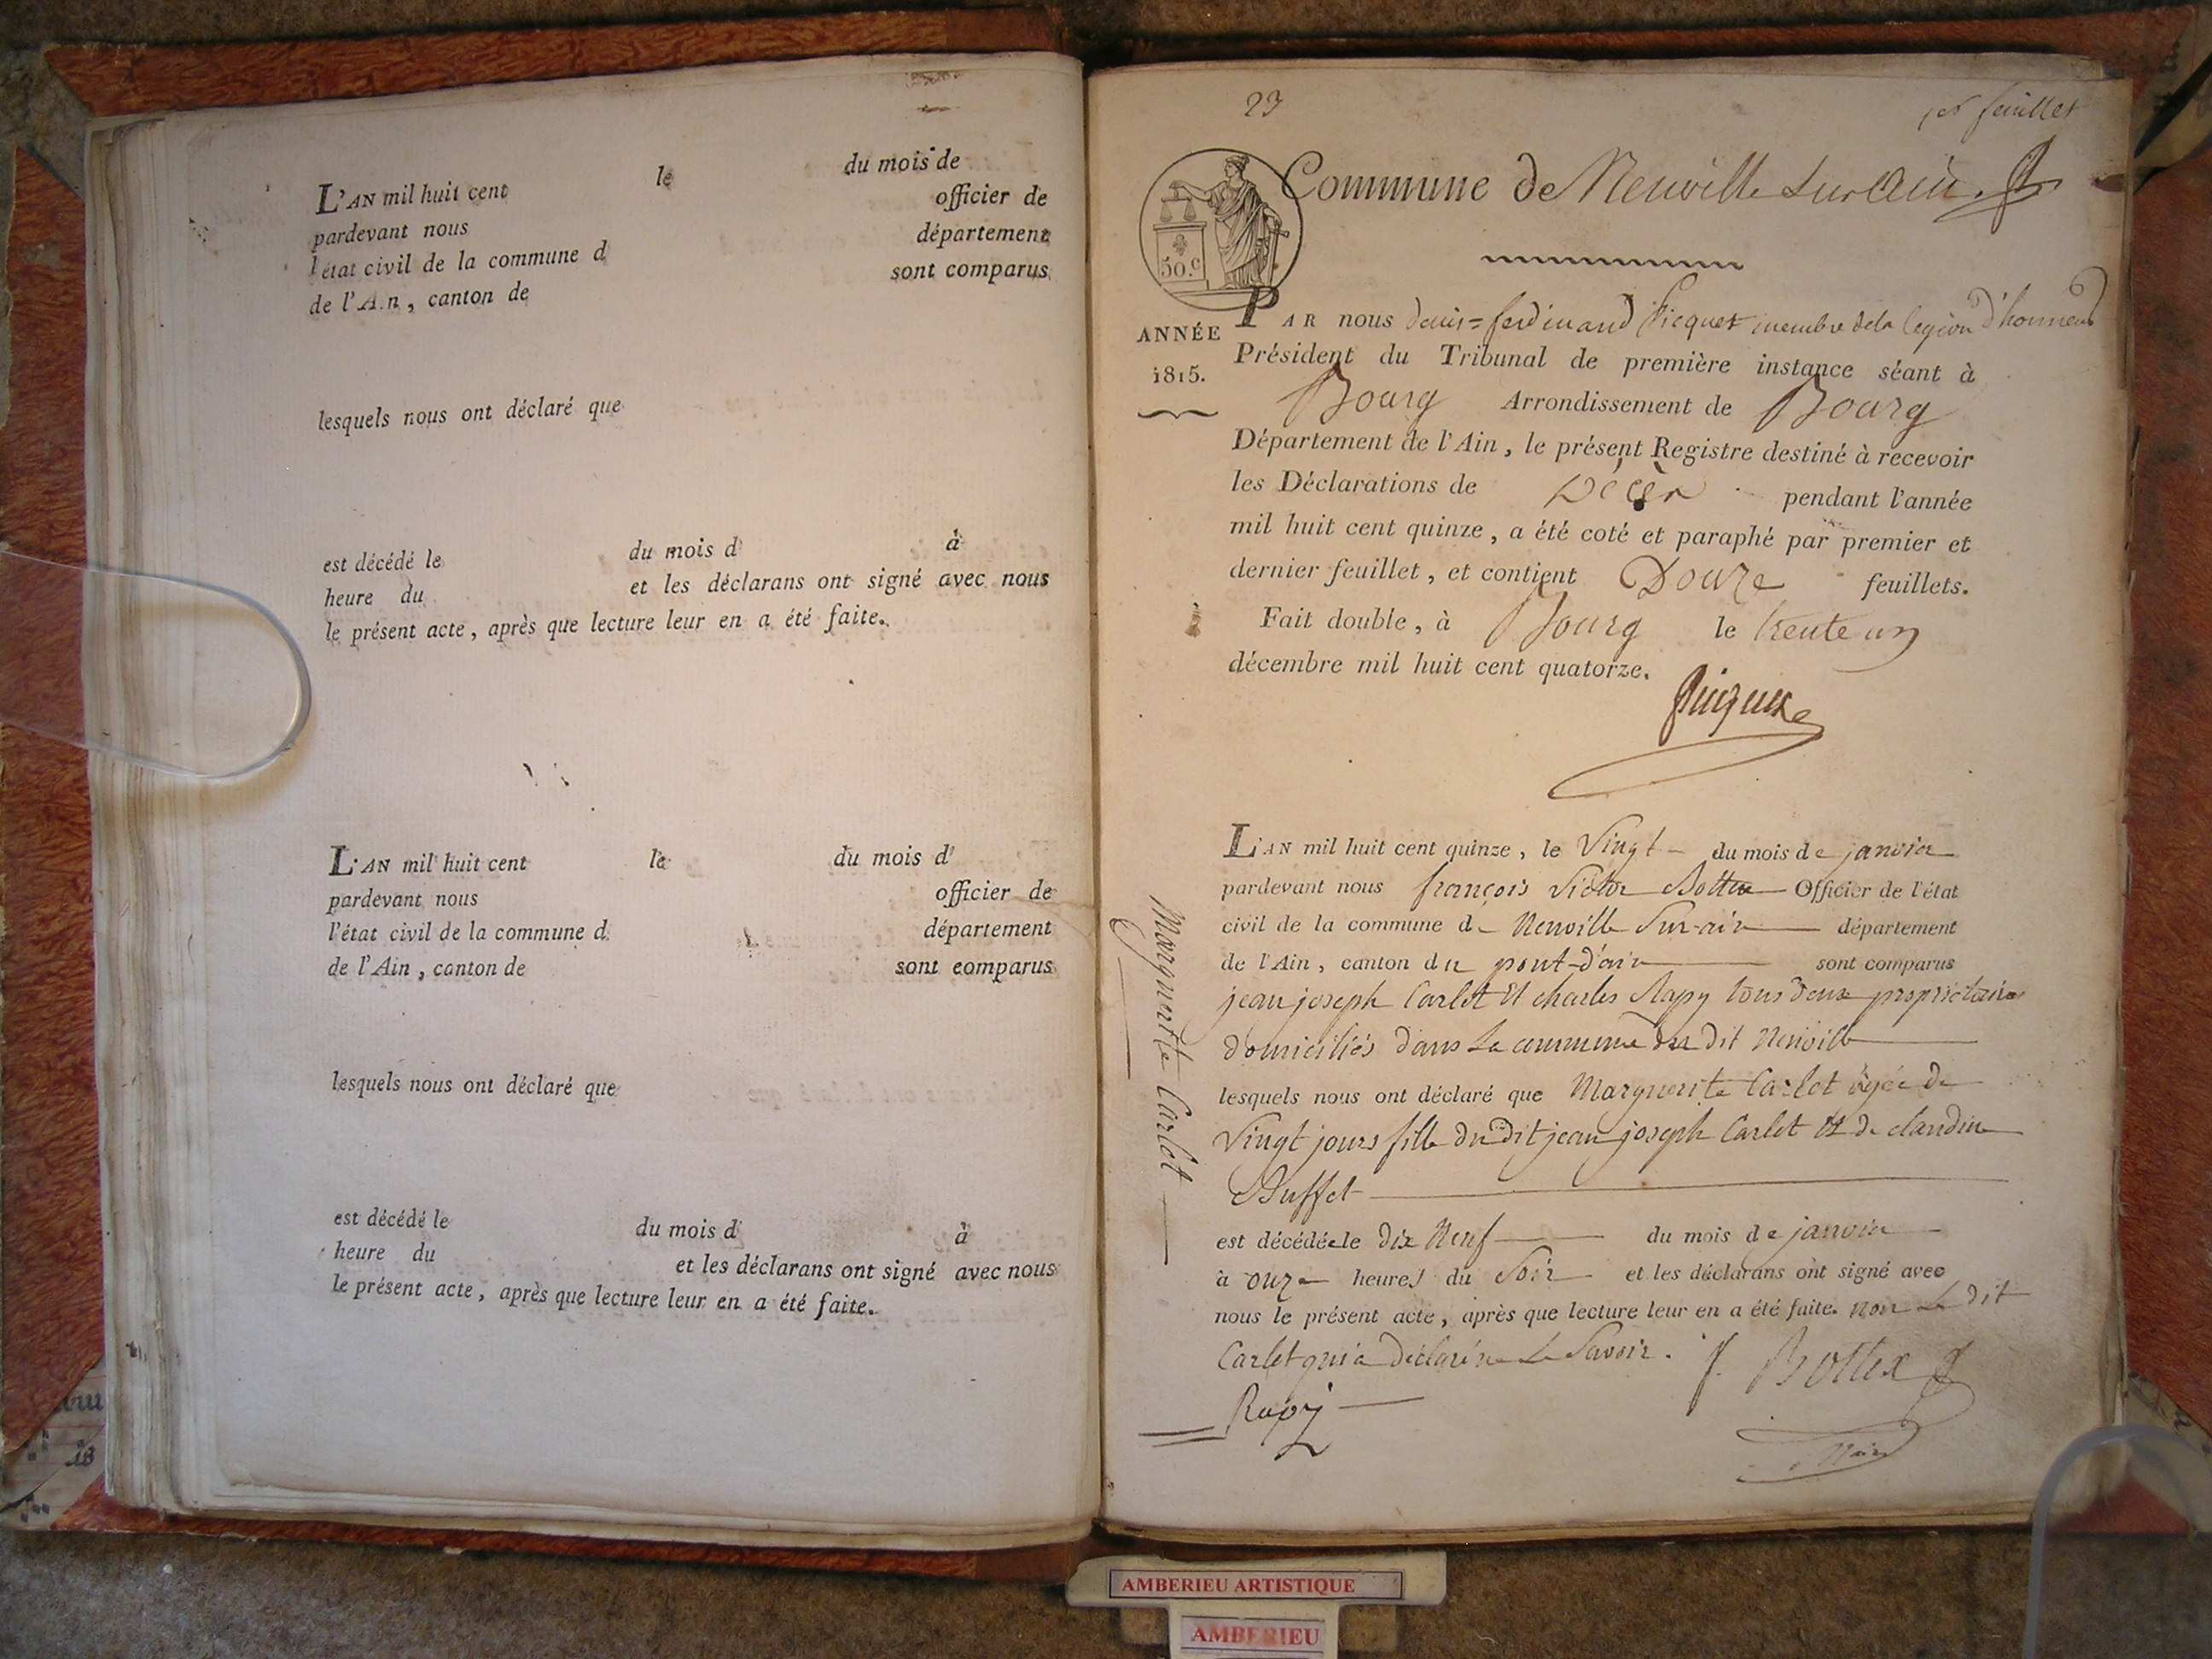 L'AN mil huit cent le du mois de
pardevant nous officier de
l'état civil de la commune d département
de l'Ain, canton de sont comparus
lesquels nous ont déclaré que
est décédé le du mois d à
heure du et les déclarans ont signé avec nous
le présent acte, après que lecture leur en a été faite.
L'AN mil huit cent le du mois d
pardevant nous officier de
l'état civil de la commune d département
de l'Ain, canton de sont comparus
lesquels nous ont déclaré que
est décédé le du mois d à
heure du et les déclarans ont signé avec nous
le présent acte, après que lecture leur en a été faite.
23
1er feuillet
Commune de Neuville sur ain
50.c
ANNÉE
1815.
PAR nous denis=ferdinand Picquet membre de la legion d'honneur
Président du Tribunal de première instance séant à
Bourg Arrondissement de Bourg
Département de l'Ain, le présent Registre destiné à recevoir
les Déclarations de Décès pendant l'année
mil huit cent quinze, a été coté et paraphé par premier et
dernier feuillet, et contient Douze feuillets.
Fait double, à Bourg le trente un
décembre mil huit cent quatorze.
Picquet
Marguerite Carlet
L'AN mil huit cent quinze, le Vingt du mois de janvier
pardevant nous françois Victor Bottex Officier de l'état
civil de la commune de Neuville Sur-ain département
de l'Ain, canton du pont-d'ain sont comparus
jean joseph Carlet Et charles Rapy tous deux propriétaires
domiciliés dans La commune du dit Neuville
lesquels nous ont déclaré que Marguerite Carlet âgée de
Vingt jours fille du dit jean joseph Carlet Et de claudine
Buffet
est décédée le dix Neuf du mois de janvier
à onze heures du Soir et les déclarans ont signé avec
nous le présent acte, après que lecture leur en a été faite. non Le dit
Carlet qui a déclaré ne Le Savoir. f. Bottex
Rapy
Maire
AMBERIEU ARTISTIQUE
AMBERIEU